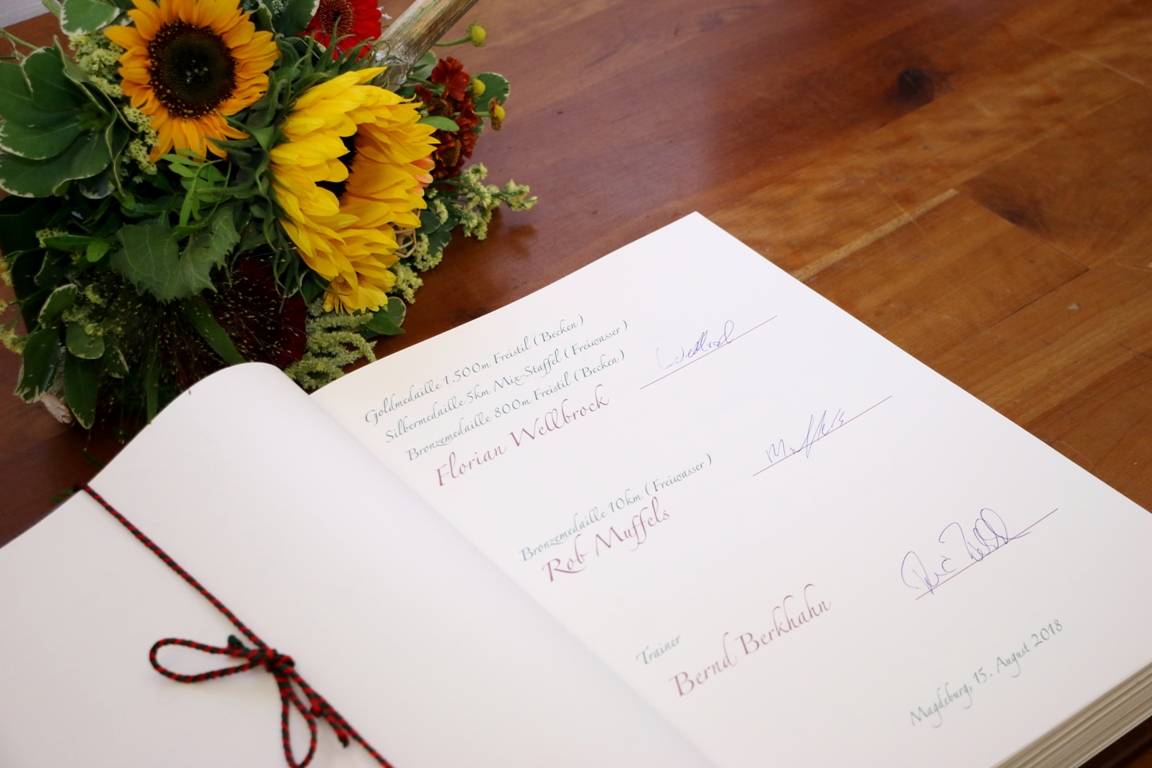 Goldmedaille 1.500m Freistil (Becken)
Silbermedaille 5km Mix-Staffel (Freiwasser)
Bronzemedaille 800m Freistil (Becken)
Florian Wellbrock
Bronzemedaille 10km (Freiwasser)
Rob Muffels
Muffels
Trainer
Bernd Berkhahn
Magdeburg, 15. August 2018